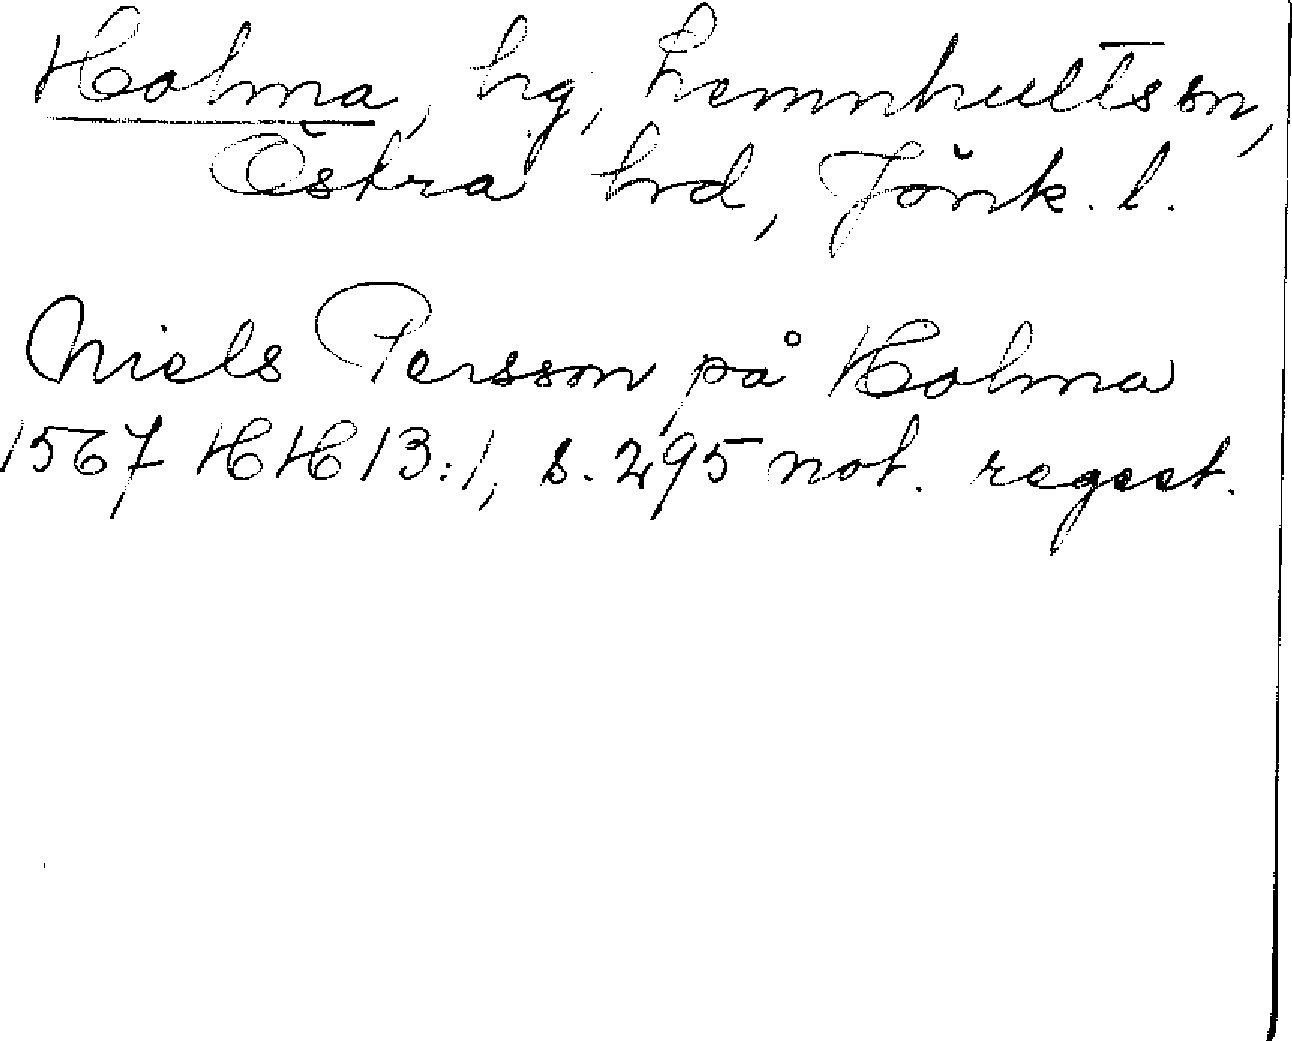 Holma, hg, Lemnhults sn,
Östra hd, Jönk. l.
Niels Persson på Holma
1567 HH 13:1, s. 295 not. regest.